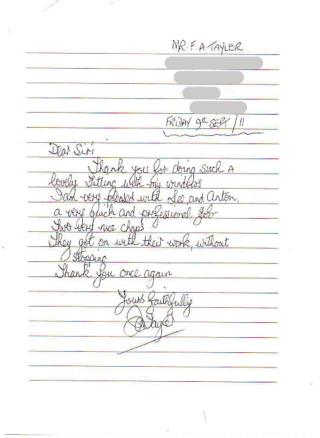 MR. F. A. TAYLER
FRIDAY 9th SEPT / 11
Dear Sir's
Thank you for doing such a
lovely fitting with my windows
I am very pleased with Lee and Anton,
a very quick and professional job
Two very nice chaps
They got on with their work, without
stopping
Thank you once again
Yours faithfully